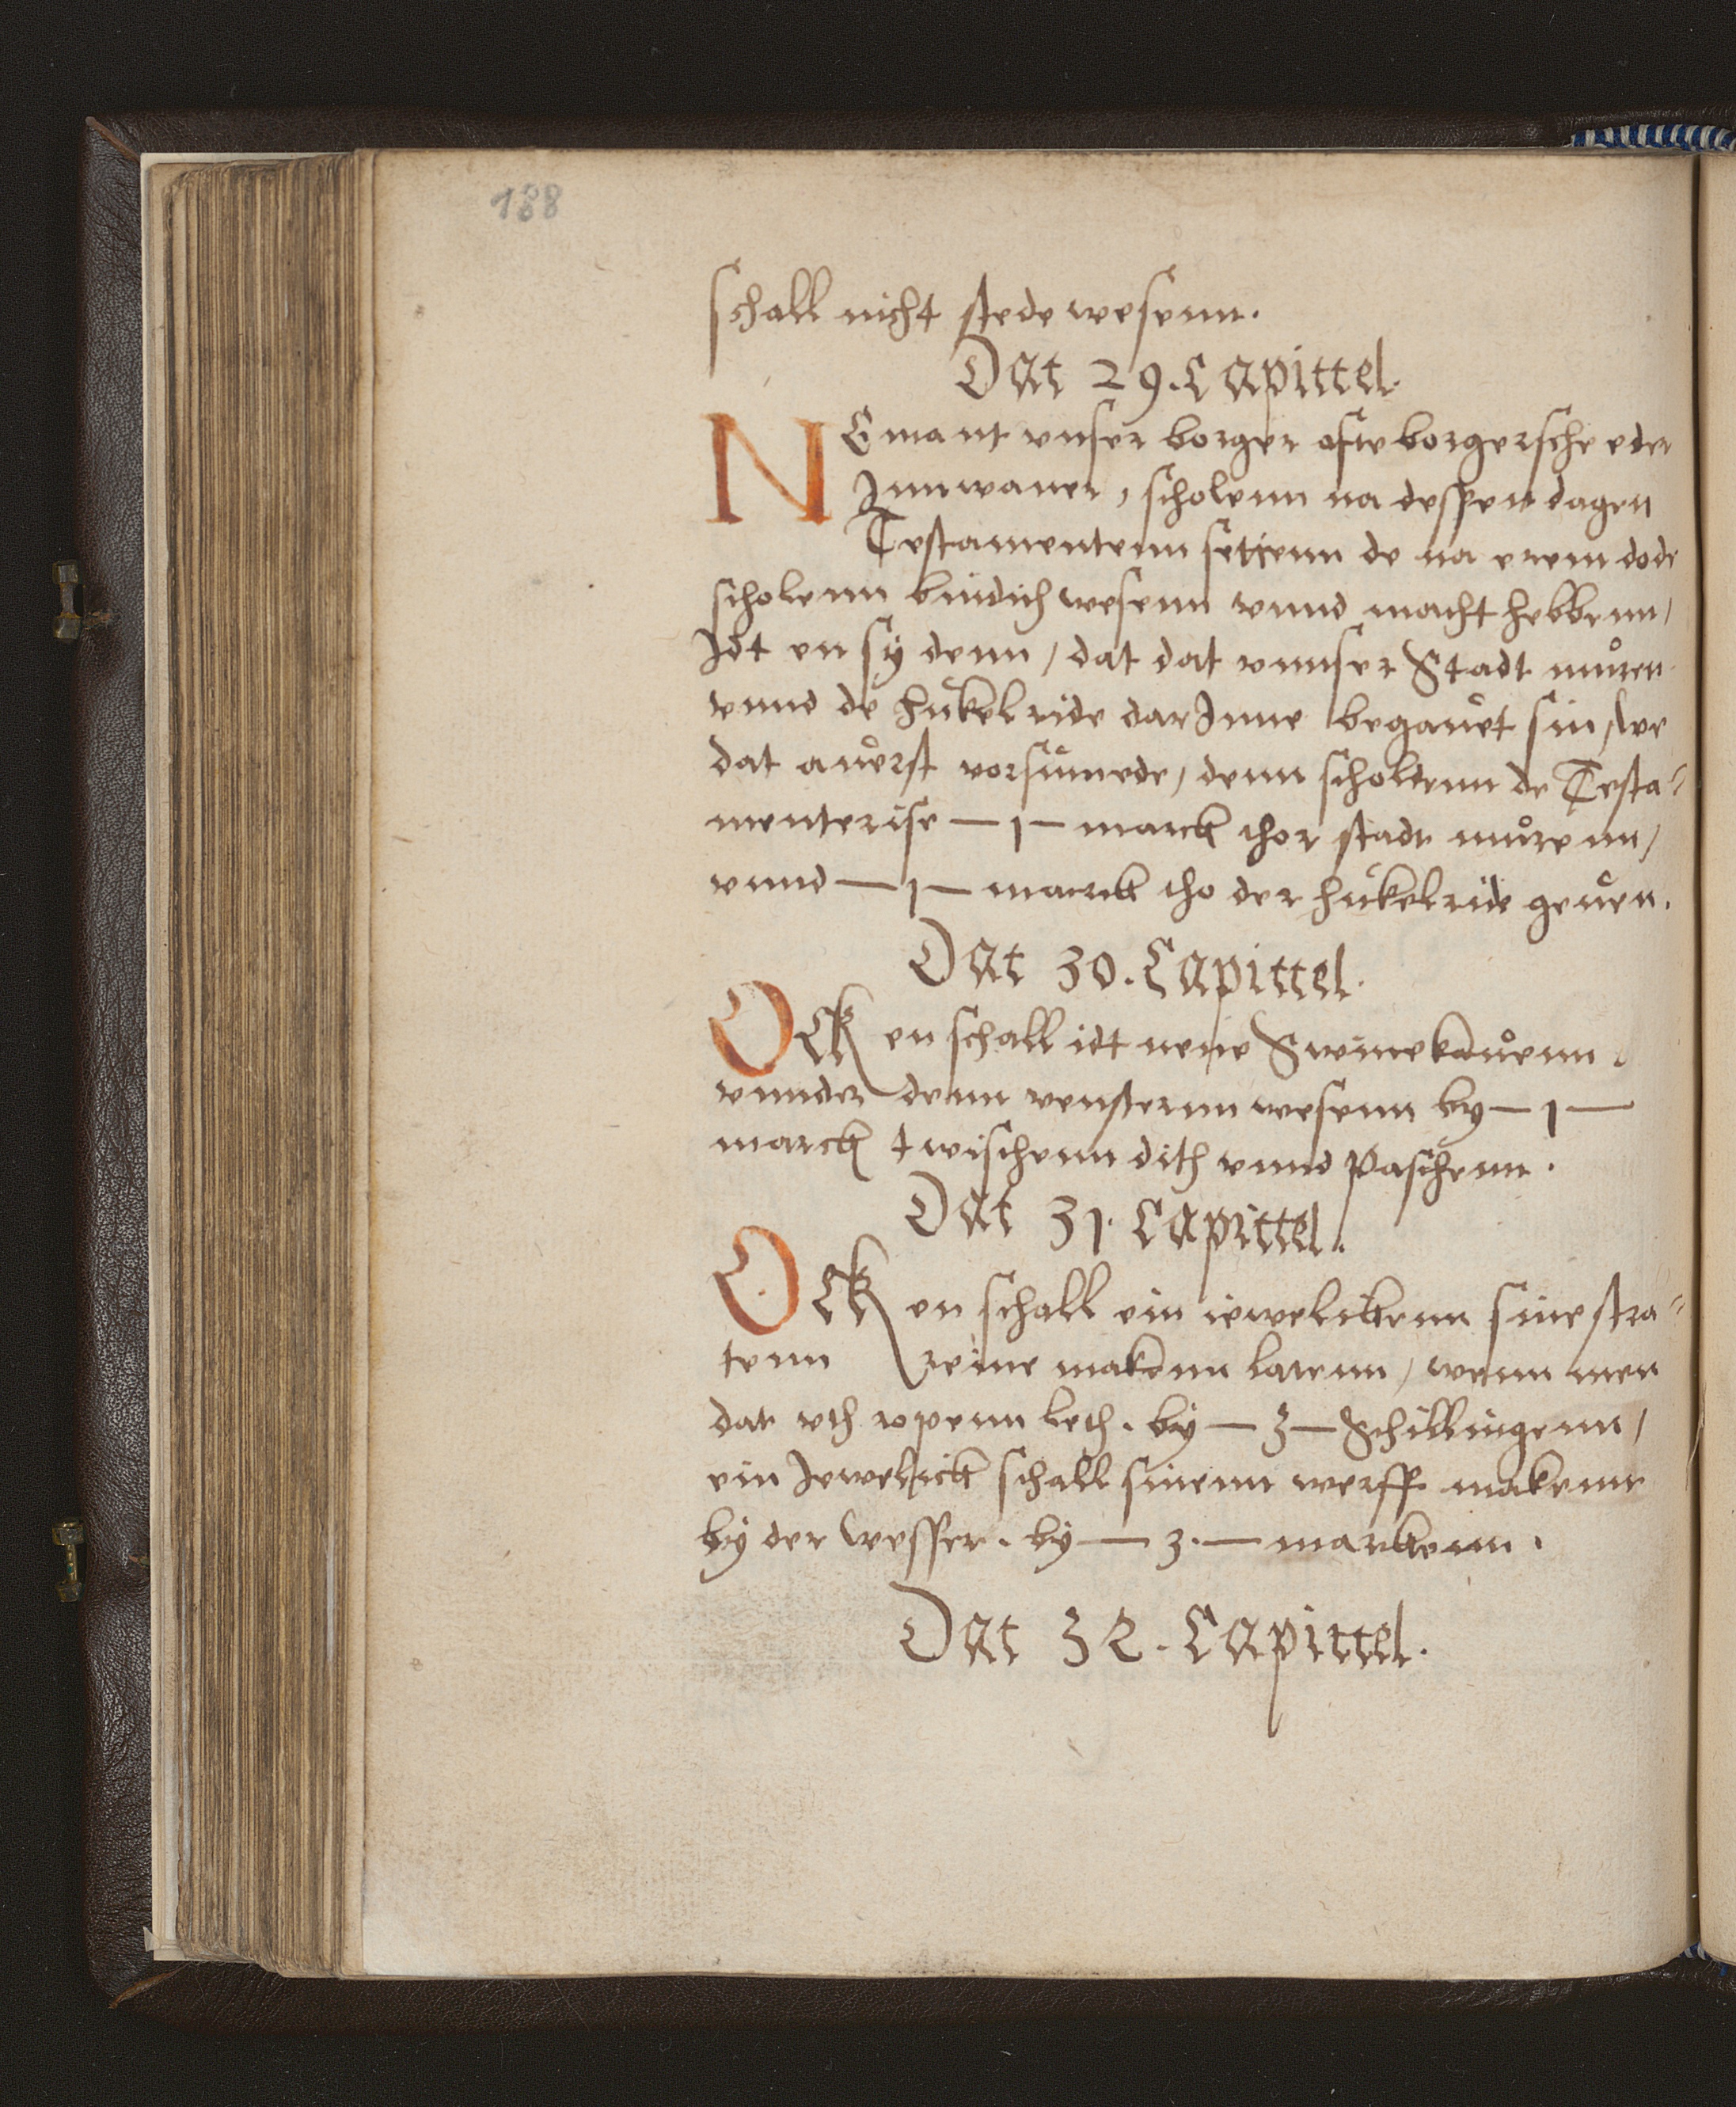 188
schall nicht stede wesenn.
Dat 29. Capittel.
NEmant vnser borger ofte borgersche eder
Innwaner, scholenn na dessen dagen
Testamentenn settenn de na erem dode
scholenn bindich wesenn vnnd macht hebbenn/
Idt en sy denn/ dat dat vnnser Stadt můren
vnnd de hukelride darInne begauet sin, We
dat auerst vorsumede/ denn scholtenn de Testa-
menterise — 1 — marck thor stadt můrenn/
vnnd — 1 — marck tho der hukelride geuen.
Dat 30. Capittel.
Ock en schall idt nene Swinekauenn.
vnnder denn vensternn wesenn by — 1 —
marck twischenn dith vnnd Paschenn.
Dat 31. Capittel.
Ock en schall ein iewelickenn sine stra-
tenn reine makenn latenn/ wenn men
dat vth ropenn leth. by — 3 — Schillingenn/
ein Jewelick schall sinenn werff makenn
by der Wesser. by — 3. — marckenn.
Dat 32. Capittel.